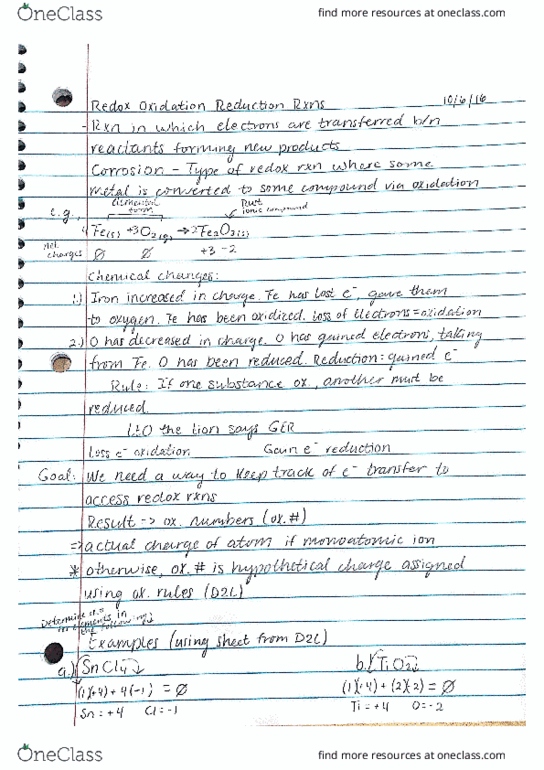 OneClass
find more resources at oneclass.com
Redox Oxidation Reduction Rxns 10/6/16
- Rxn in which electrons are transferred b/n
reactants forming new products
Corrosion - Type of redox rxn where some
metal is converted to some compound via oxidation
e.g., elemental form Rust ionic compound
4Fe(s) + 3O2(g) → 2Fe2O3(s)
net charges Ø Ø +3 -2
Chemical changes:
1.) Iron increased in charge. Fe has lost e⁻, gave them
to oxygen. Fe has been oxidized. Loss of electrons = oxidation
2.) O has decreased in charge. O has gained electrons, taking
from Fe. O has been reduced. Reduction: gained e⁻
Rule: If one substance ox., another must be
reduced.
LEO the lion says GER
Loss e⁻ oxidation Gain e⁻ reduction
Goal: We need a way to keep track of e⁻ transfer to
access redox rxns
Result -> ox. numbers (ox.#)
=> actual charge of atom if monoatomic ion
* otherwise, ox.# is hypothetical charge assigned
using ox. rules (D2L)
Determine elements in the following
Examples (using sheet from D2L)
a.) SnCl4 b.) TiO2
(1)(+4) + 4(-1) = Ø (1)(+4) + (2)(-2) = Ø
Sn = +4 Cl = -1 Ti = +4 O = -2
OneClass
find more resources at oneclass.com